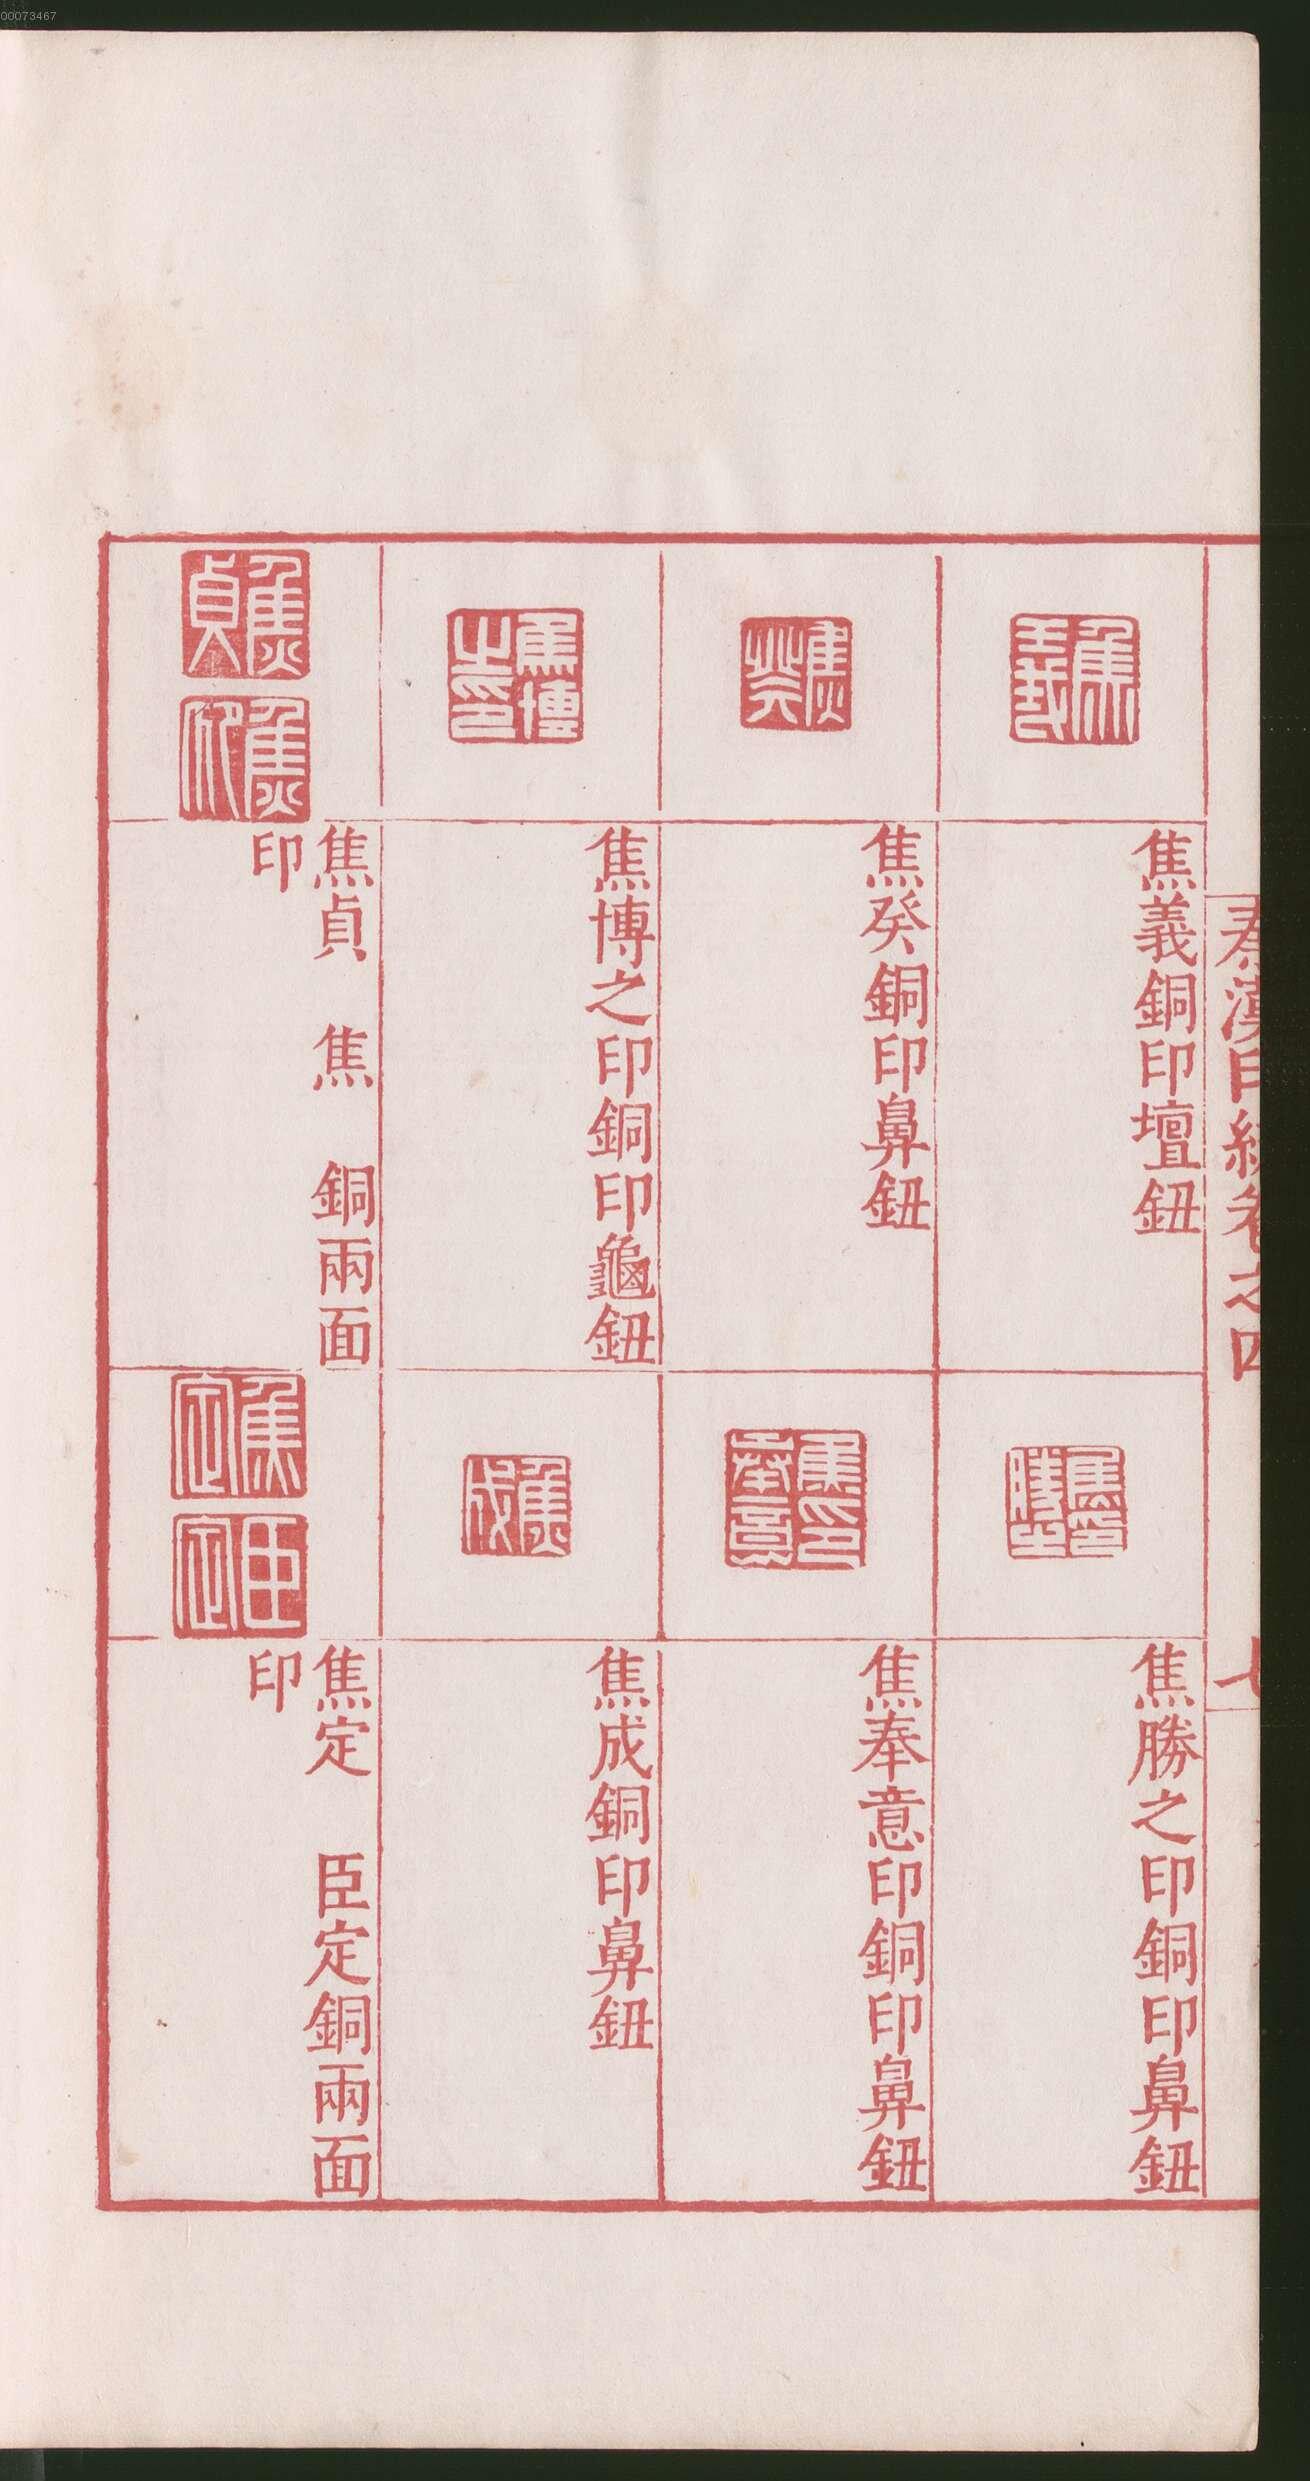 00073467
秦漢印統卷之四
七
焦義銅印壇鈕
焦癸銅印鼻鈕
焦博之印銅印龜鈕
焦貞 焦 銅兩面
印
焦勝之印銅印鼻鈕
焦奉意印銅印鼻鈕
焦成銅印鼻鈕
焦定 臣定銅兩面
印